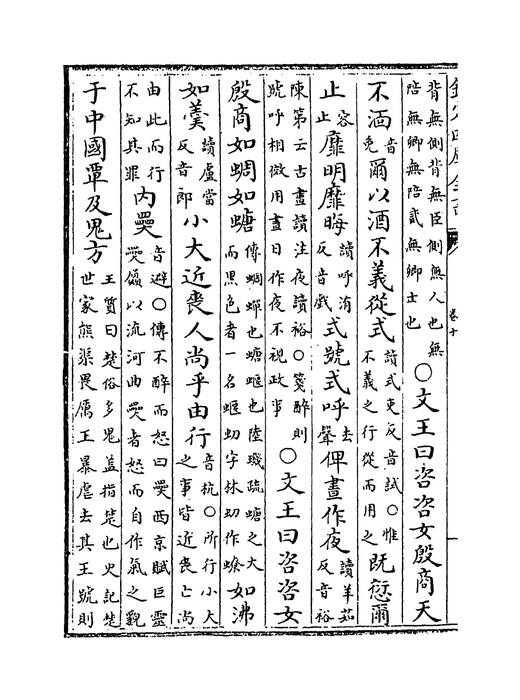 欽定四庫全書
卷十
背無側背無臣側無人也無
陪無卿無陪貳無卿士也
○文王曰咨咨女殷商天
不湎
音
免
爾以酒不義從式
讀式吏反音試○惟
不義之行從而用之
既愆爾
止
容
止
靡明靡晦
讀呼洧
反音戲
式號式呼
去
聲
俾晝作夜
讀羊茹
反音裕
陳第云古晝讀注夜讀裕○箋醉則
號呼相傚用晝日作夜不視政事
○文王曰咨咨女
殷商如蜩如螗
傳蜩蟬也螗蝘也陸璣疏螗之大
而黑色者一名蝘虭字林虭作蟟
如沸
如羹
讀盧當
反音郎
小大近喪人尚乎由行
音杭○所行小大
之事皆近喪亡尚
由此而行
不知其罪
內奰
音避○傳不醉而怒曰奰西京賦巨靈
奰屭以流河曲奰者怒而自作氣之貌
于中國覃及鬼方
王質曰楚俗多鬼蓋指楚也史記楚
世家熊渠畏厲王暴虐去其王號則